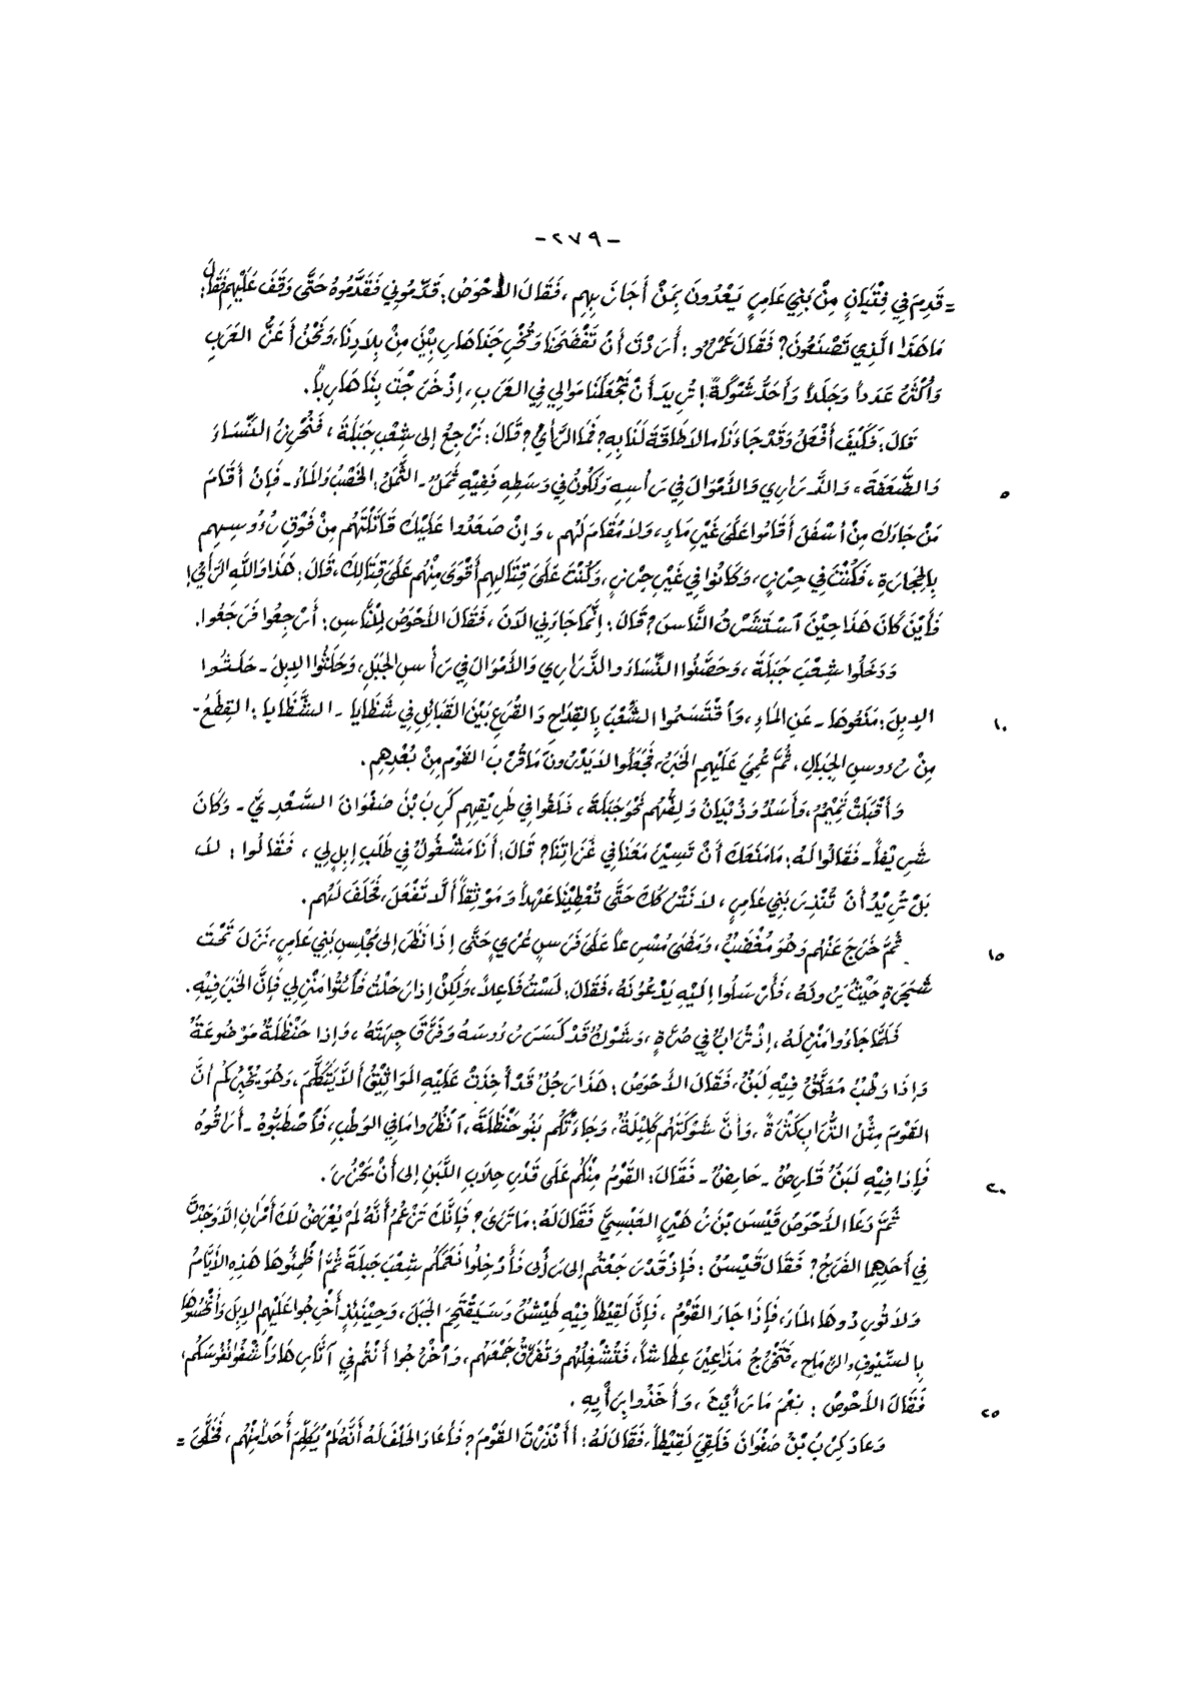 -٢٧٩-
= قَدِمَ فِي فِتْيَانٍ مِنْ بَنِي عَامِرٍ يَعْدُونَ بِمَنْ أَجَازَ بِهِم ، فَقَالَ الأَحْوَصُ : قَدِّمُونِي فَقَدَّمُوهُ حَتَّى وَقَفَ عَلَيْهِم فَقَالَ :
مَا هَذَا الَّذِي تَصْنَعُونَ ؟ فَقَالَ عَمْرٌو : أَرَدْتَ أَنْ تَفْضَحَنَا وَتُخْرِجَنَا هَارِبِيْنَ مِنْ بِلَادِنَا ، وَنَحْنُ أَعَزُّ العَرَبِ
وَأَكْثَرُ عَدَداً وَجَلَداً وَأَحَدُّ شَوْكَةً ! تُرِيدَ أَنْ تَجْعَلَنَا مَوَالِي فِي العَرَبِ ، إِذْ خَرَجْتَ بِنَا هَارِباً .
قَالَ : فَكَيْفَ أَفْعَلُ وَقَدْ جَاءَنَا مَا لاَ طَاقَةَ لَنَا بِهِ ؟ فَمَا الرَّأْيُ ؟ قَالَ : نَرْجِعُ إِلى شِعْبِ جَبَلَةَ ، فَنُحْرِزُ النِّسَاءَ
وَالضَّعَفَةَ ، وَالذَّرَارِي وَالأَمْوَالَ فِي رَأْسِهِ وَنَكُونُ فِي وَسَطِهِ فَفِيْهِ ثَمَلٌ - الثَّمَلُ : الخَصْبُ وَالمَاءُ - فَإِنْ أَقَامَ
٥
مَنْ جَاءَكَ مِنْ أَسْفَلَ أَقَامُوا عَلَى غَيْرِ مَاءٍ ، وَلاَ مُقَامَ لَهُم ، وَإِنْ صَعَدُوا عَلَيْكَ قَاتَلْتَهُم مِنْ فَوْقِ رُءُوسِهِم
بِالحِجَارَةِ ، فَكُنْتَ فِي حِرْزٍ ، وَكَانُوا فِي غَيْرِ حِرْزٍ ، وَكُنْتَ عَلَى قِتَالِهِم أَقْوَى مِنْهُم عَلَى قِتَالِكَ ، قَالَ : هَذَا وَاللهِ الرَّأْيُ !
فَأَيْنَ كَانَ هَذَا حِيْنَ اسْتَشَرْتُ النَّاسَ ؟ قَالَ : إِنَّمَا جَاءَنِي الآنَ ، فَقَالَ الأَحْوَصُ لِلنَّاسِ : أَرْجِعُوا فَرَجَعُوا .
وَدَخَلُوا شِعْبَ جَبَلَةَ ، وَحَصَّنُوا النِّسَاءَ وَالذَّرَارِي وَالأَمْوَالَ فِي رَأْسِ الجَبَلِ ، وَحَلَّئُوا الإِبِلَ - حَلَّئُوا
الإِبِلَ : مَنَعُوهَا - عَنِ المَاءِ ، وَاقْتَسَمُوا الشِّعْبَ بِالقِدَاحِ وَالقُرَعِ بَيْنَ القَبَائِلِ فِي شَظَايَا - الشَّظَايا : القِطَعُ -
١٠
مِنْ رُءوسِ الجِبَالِ ، ثُمَّ عُمِّيَ عَلَيْهِمِ الخَبَرُ ، فَجَعَلُوا لاَ يَدْرُونَ مَا قُرْبَ القَوْمِ مِنْ بُعْدِهِم .
وَأَقْبَلَتْ تَمِيْمُ ، وَأَسَدُ وَذُبْيَانُ وَلِفُّهُم نَحْوَ جَبَلَةَ ، فَلَقُوا فِي طَرِيْقِهِم كَرِبَ بْنَ صَفْوَانَ السَّعْدِيَّ - وَكَانَ
شَرِيْفاً - فَقَالُوا لَهُ : مَا مَنَعَكَ أَنْ تَسِيْرَ مَعَنَا فِي غَزَاتِنَا ؟ قَالَ : أَنَا مَشْغُولٌ فِي طَلَبِ إِبِلٍ لِي ، فَقَالُوا : لاَ ،
بَلْ تُرِيْدُ أَنْ تُنْذِرَ بَنِي عَامِرٍ ، لاَ نَتْرُكُكَ حَتَّى تُعْطِيَنَا عَهْداً وَمَوْثِقاً أَلاَّ تَفْعَلَ ، فَحَلَفَ لَهُم .
ثُمَّ خَرَجَ عَنْهُم وَهُوَ مُغْضَبٌ ، وَمَضَى مُسْرِعاً عَلَى فَرَسٍ عُرْيٍ حَتَّى إِذَا نَظَرَ إِلى مَجْلِسِ بَنِي عَامِرٍ ، نَزَلَ تَحْتَ
١٥
شَجَرَةٍ حَيْثُ يَرَوْنَهُ ، فَأَرْسَلُوا إِلَيْهِ يَدْعُونَهُ ، فَقَالَ : لَسْتُ فَاعِلاً ، وَلَكِنْ إِذَا رَحَلْتُ فَأْتُوا مَنْزِلِي فَإِنَّ الخَبَرَ فِيْهِ .
فَلَمَّا جَاءُوا مَنْزِلَهُ ، إِذْ تُرَابٌ فِي صُرَّةٍ ، وَشَوْكٌ قَدْ كَسَرَ رُءوسَهُ وَفَرَّقَ جِهَتَهُ ، وَإِذا حَنْظَلَةٌ مَوْضُوعَةٌ
وَإِذَا وَطْبٌ مُعَلَّقٌ فِيْهِ لَبَنٌ ، فَقَالَ الأَحْوَصُ : هَذَا رَجُلٌ قَدْ أُخِذَتْ عَلَيْهِ المَوَاثِيْقُ أَلاَّ يَتَكَلَّمَ ، وَهُوَ يُخْبِرُكُم أَنَّ
القَوْمَ مِثْلُ التُّرَابِ كَثْرَةً ، وَأَنَّ شَوْكَتَهُم كَلِيْلَةٌ ، وَجَاءَتْكُم بَنُو حَنْظَلَةَ ، انْظُرُوا مَا فِي الوَطْبِ ، فَاصْطَبُّوهُ - أَرَاقُوهُ
فَإِذَا فِيْهِ لَبَنٌ قَارِصٌ - حَامِضٌ - فَقَالَ : القَوْمُ مِنْكُم عَلَى قَدْرِ حِلاَبِ اللَّبَنِ إِلى أَنْ يَحْزُرَ .
٢٠
ثُمَّ دَعَا الأَحْوَصُ قَيْسَ بْنَ زُهَيْرٍ العَبْسِيَّ فَقَالَ لَهُ : مَا تَرَى ؟ فَإِنَّكَ تَزْعُمُ أَنَّهُ لَمْ يَعْرِضْ لَكَ أَمْرَانِ إِلاَّ وَجَدْتَ
فِي أَحَدِهِمَا الفَرَجُ ؟ فَقَالَ قَيْسٌ : فَإِذْ قَدْ رَجَعْتُم إِلى رَأْيِي فَأَدْخِلُوا نَعَمَكُم شِعْبَ جَبَلَةَ ثُمَّ أَظْمِئُوهَا هَذِهِ الأَيَّامَ
وَلاَ تُورِدُوهَا المَاءَ ، فَإِذَا جَاءَ القَوْمُ ، فَإِنَّ لَقِيْطاً فِيْهِ طَيْشٌ وَسَيَقْتَحِمُ الجَبَلَ ، وَحِيْنَئِذٍ أَخْرِجُوا عَلَيْهِمِ الإِبِلَ وَانْخُسُوهَا
بِالسُّيُوفِ وَالرِّمَاحِ ، فَتَخْرُجُ مَذَاعِيْرَ عِطَاشاً ، فَتُشْغِلُهُم وَتُفَرِّقُ جَمْعَهُم ، وَاخْرُجُوا أَنْتُم فِي آثَارِهَا وَاشْفُوا نُفُوسَكُم ،
فَقَالَ الأَحْوَصُ : نِعْمَ مَا رَأَيْتَ ، وَأَخَذُوا بِرَأْيِهِ .
٢٥
وَعَادَ كَرِبُ بْنُ صَفْوَانَ فَلَقِيَ لَقِيْطاً ، فَقَالَ لَهُ : أَأَنْذَرْتَ القَوْمَ ؟ فَأَعَادَ الحَلْفَ لَهُ أَنَّهُ لَمْ يُكَلِّمْ أَحَداً مِنْهُم ، فَخَلَّى =